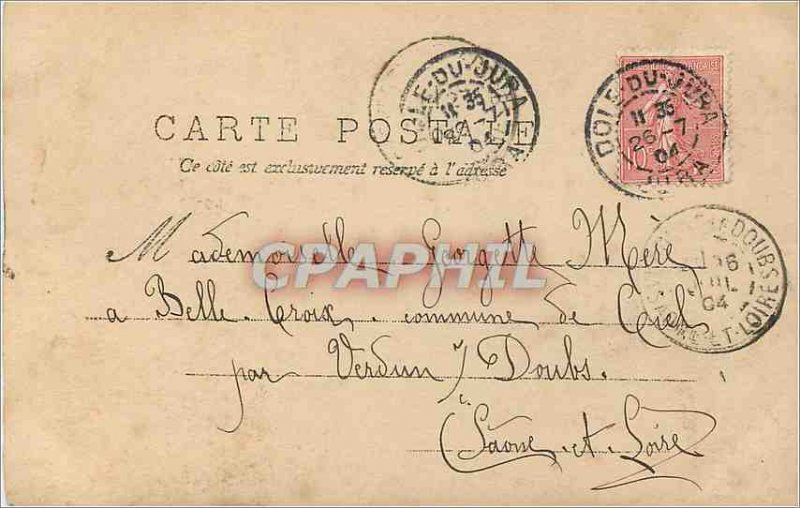 DOLE-DU-JURA
11 35
26-7
04
JURA
DOLE-DU-JURA
11 35
26-7
04
JURA
CARTE POSTALE
Ce côté est exclusivement réservé à l'adresse
DOUBS
26
JUIL
04
SAONE-ET-LOIRE
CPAPHIL
Mademoiselle Georgette Mère
a Belle Croix. commune de Ciel
par Verdun s/ Doubs.
Saône et Loire